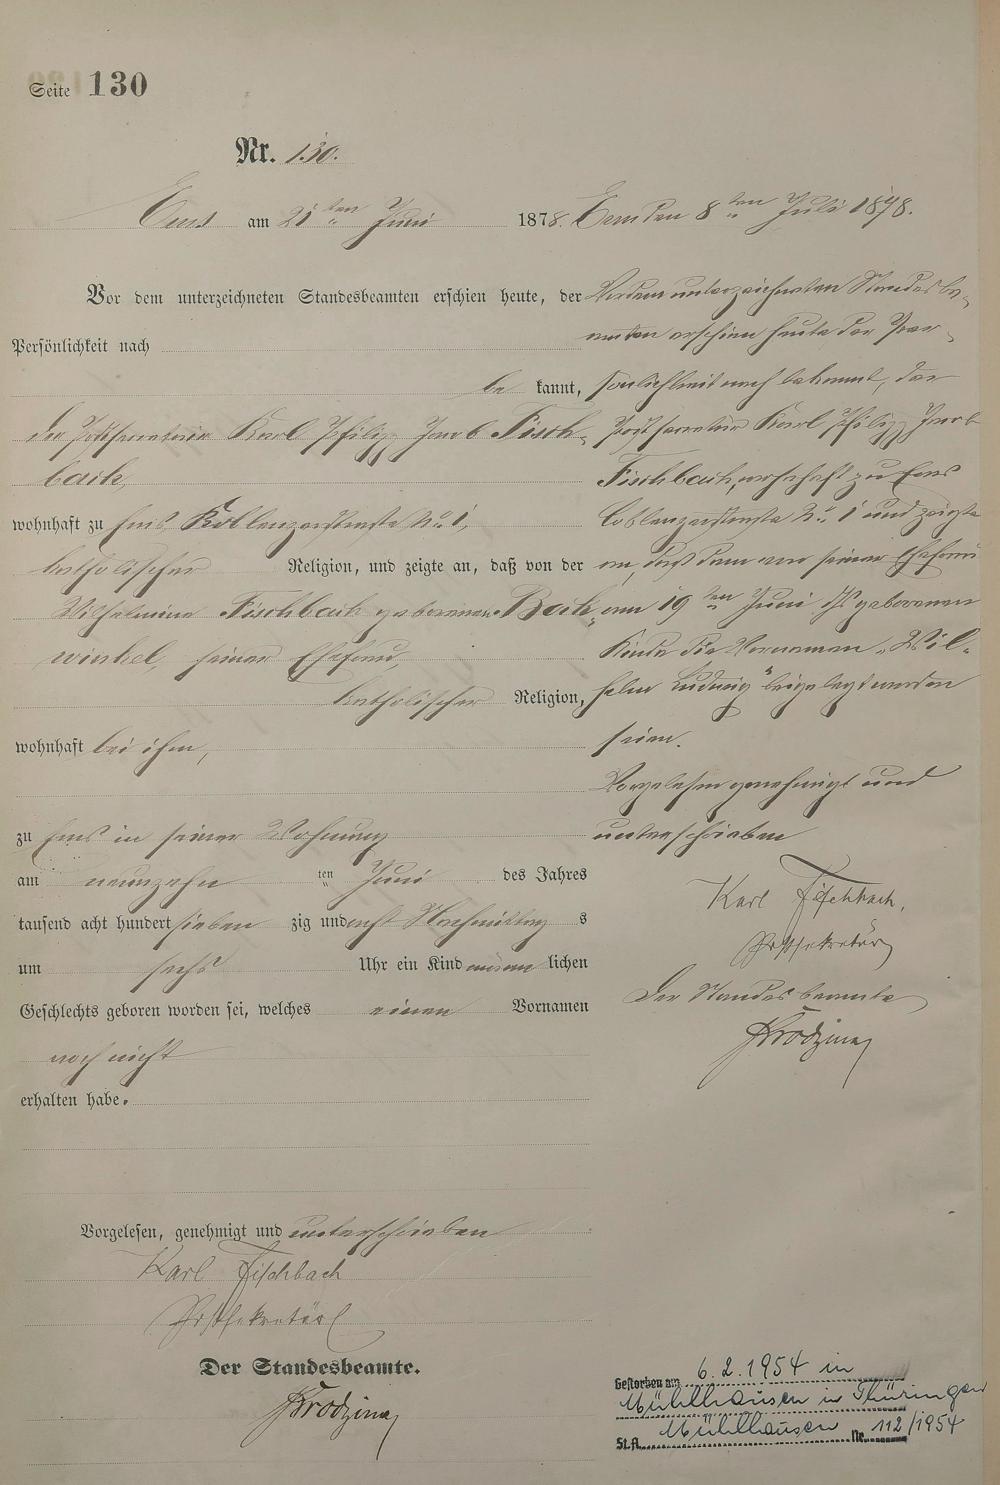 Seite 130
Nr. 130.
Ems am 21ten Juni 1878.
Vor dem unterzeichneten Standesbeamten erschien heute, der
Persönlichkeit nach
be kannt,
der Postsecretair Karl Philipp Jacob Fisch-
bach,
wohnhaft zu Ems Koblenzerstraße No. 1,
katholischer Religion, und zeigte an, daß von der
Wilhelmine Fischbach geborenen Back-
winkel, seiner Ehefrau,
katholischer Religion,
wohnhaft bei ihm,
zu Ems in seiner Wohnung
am neunzehn ten Juni des Jahres
tausend acht hundert sieben zig und acht Nachmittag s
um sechs Uhr ein Kind männ lichen
Geschlechts geboren worden sei, welches einen Vornamen
noch nicht
erhalten habe.
Vorgelesen, genehmigt und unterschrieben
Karl Fischbach
Postsekretär
Der Standesbeamte.
Ems den 8ten Juli 1878.
Vor dem unterzeichneten Standesbe-
amten erschien heute der Per-
sönlichkeit nach bekannt, der
Postsecretär Karl Philipp Jacob
Fischbach, wohnhaft zu Ems
Coblenzerstraße No. 1 und zeigte
an, daß dem von seiner Ehefrau
am 19ten Juni geborenen
Kinde die Vornamen "Wil-
helm Ludwig" beigelegt worden
seien.
Vorgelesen genehmigt und
unterschrieben
Karl Fischbach,
Postsekretär
Der Standesbeamte
Gestorben am 6.2.1954 in
Mühlhausen in Thüringen
St.A. Mühlhausen Nr. 112/1954